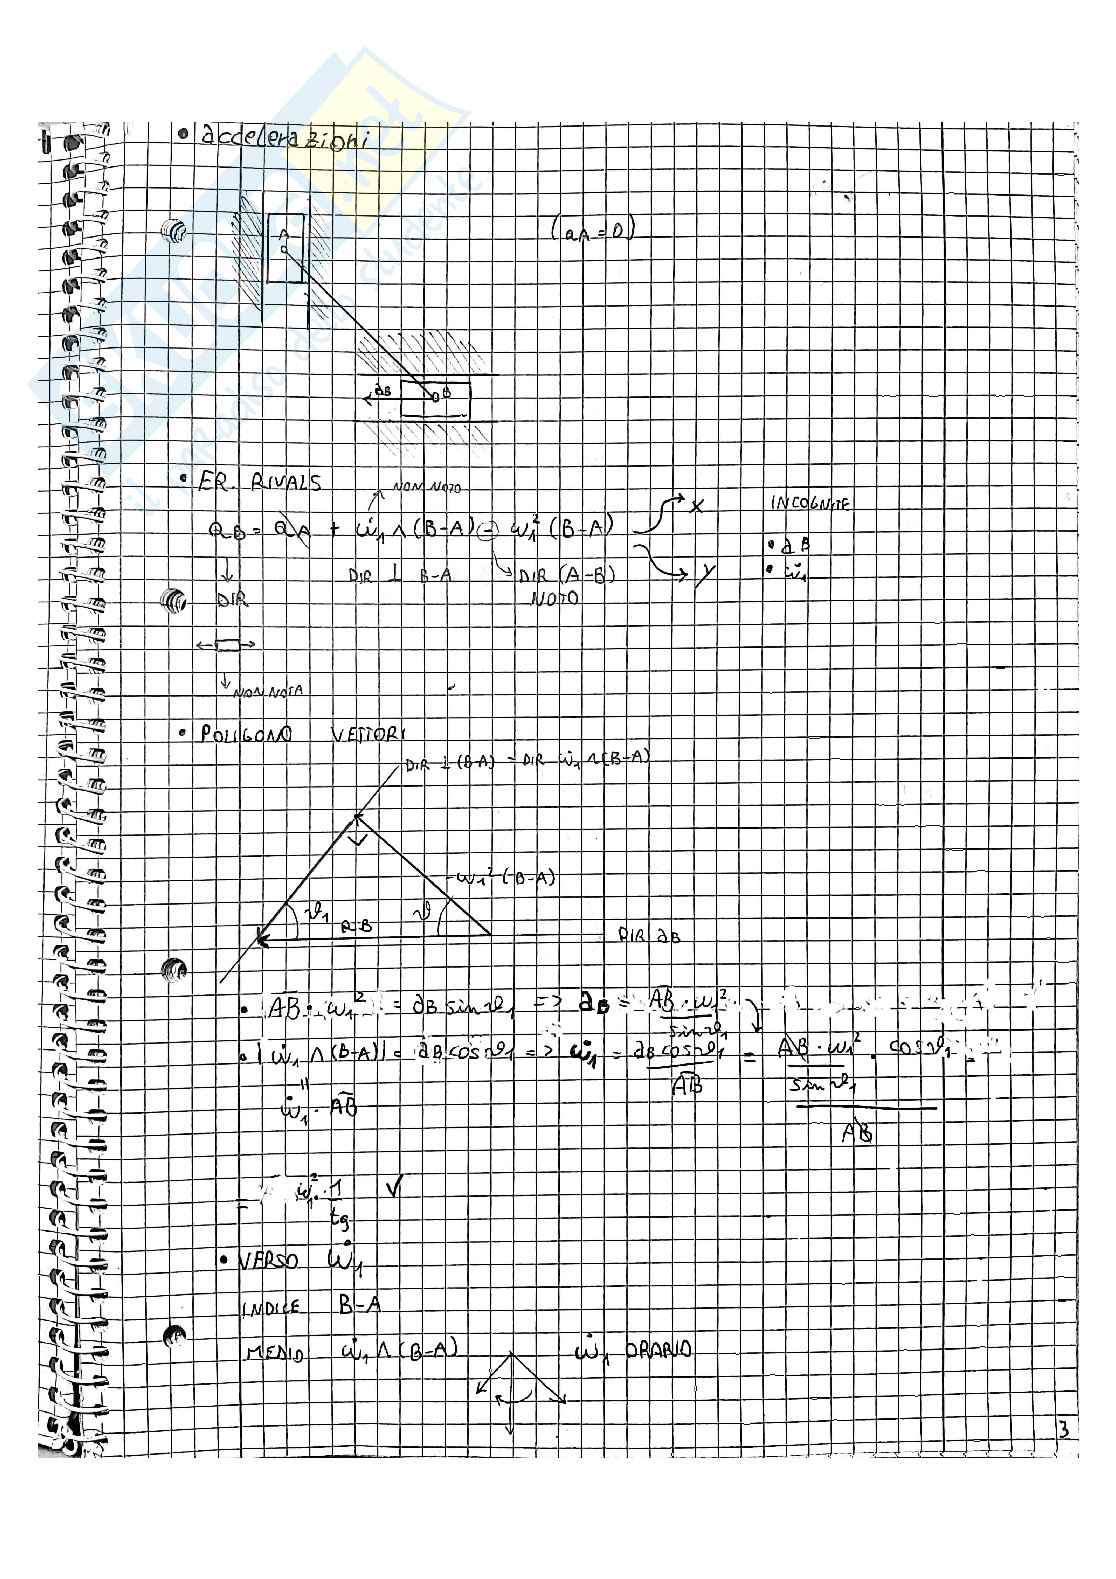 • accelerazioni
A
(aA = 0)
aB
B
• ER. RIVALS
NON NOTO
aB = aA + ω̇1 ∧ (B-A) - ω1² (B-A)
X
Y
INCOGNITE
• aB
• ω̇1
DIR
DIR ⊥ B-A
DIR (A-B)
NOTO
NON NOTA
• POLIGONO VETTORI
DIR ⊥ (B-A) = DIR ω̇1 ∧ (B-A)
-ω1² (B-A)
ϑ1
aB
ϑ
DIR aB
• AB · ω1² = aB sinϑ1 => aB = AB · ω1² / sinϑ1
• |ω̇1 ∧ (B-A)| = aB cosϑ1 => ω̇1 = aB cosϑ1 / AB = AB · ω1² / sinϑ1 · cosϑ1 / AB =
ω̇1 · AB
= ω1² · 1 / tg
• VERSO ω̇1
INDICE B-A
MEDIO ω̇1 ∧ (B-A)
ω̇1 ORARIO
3